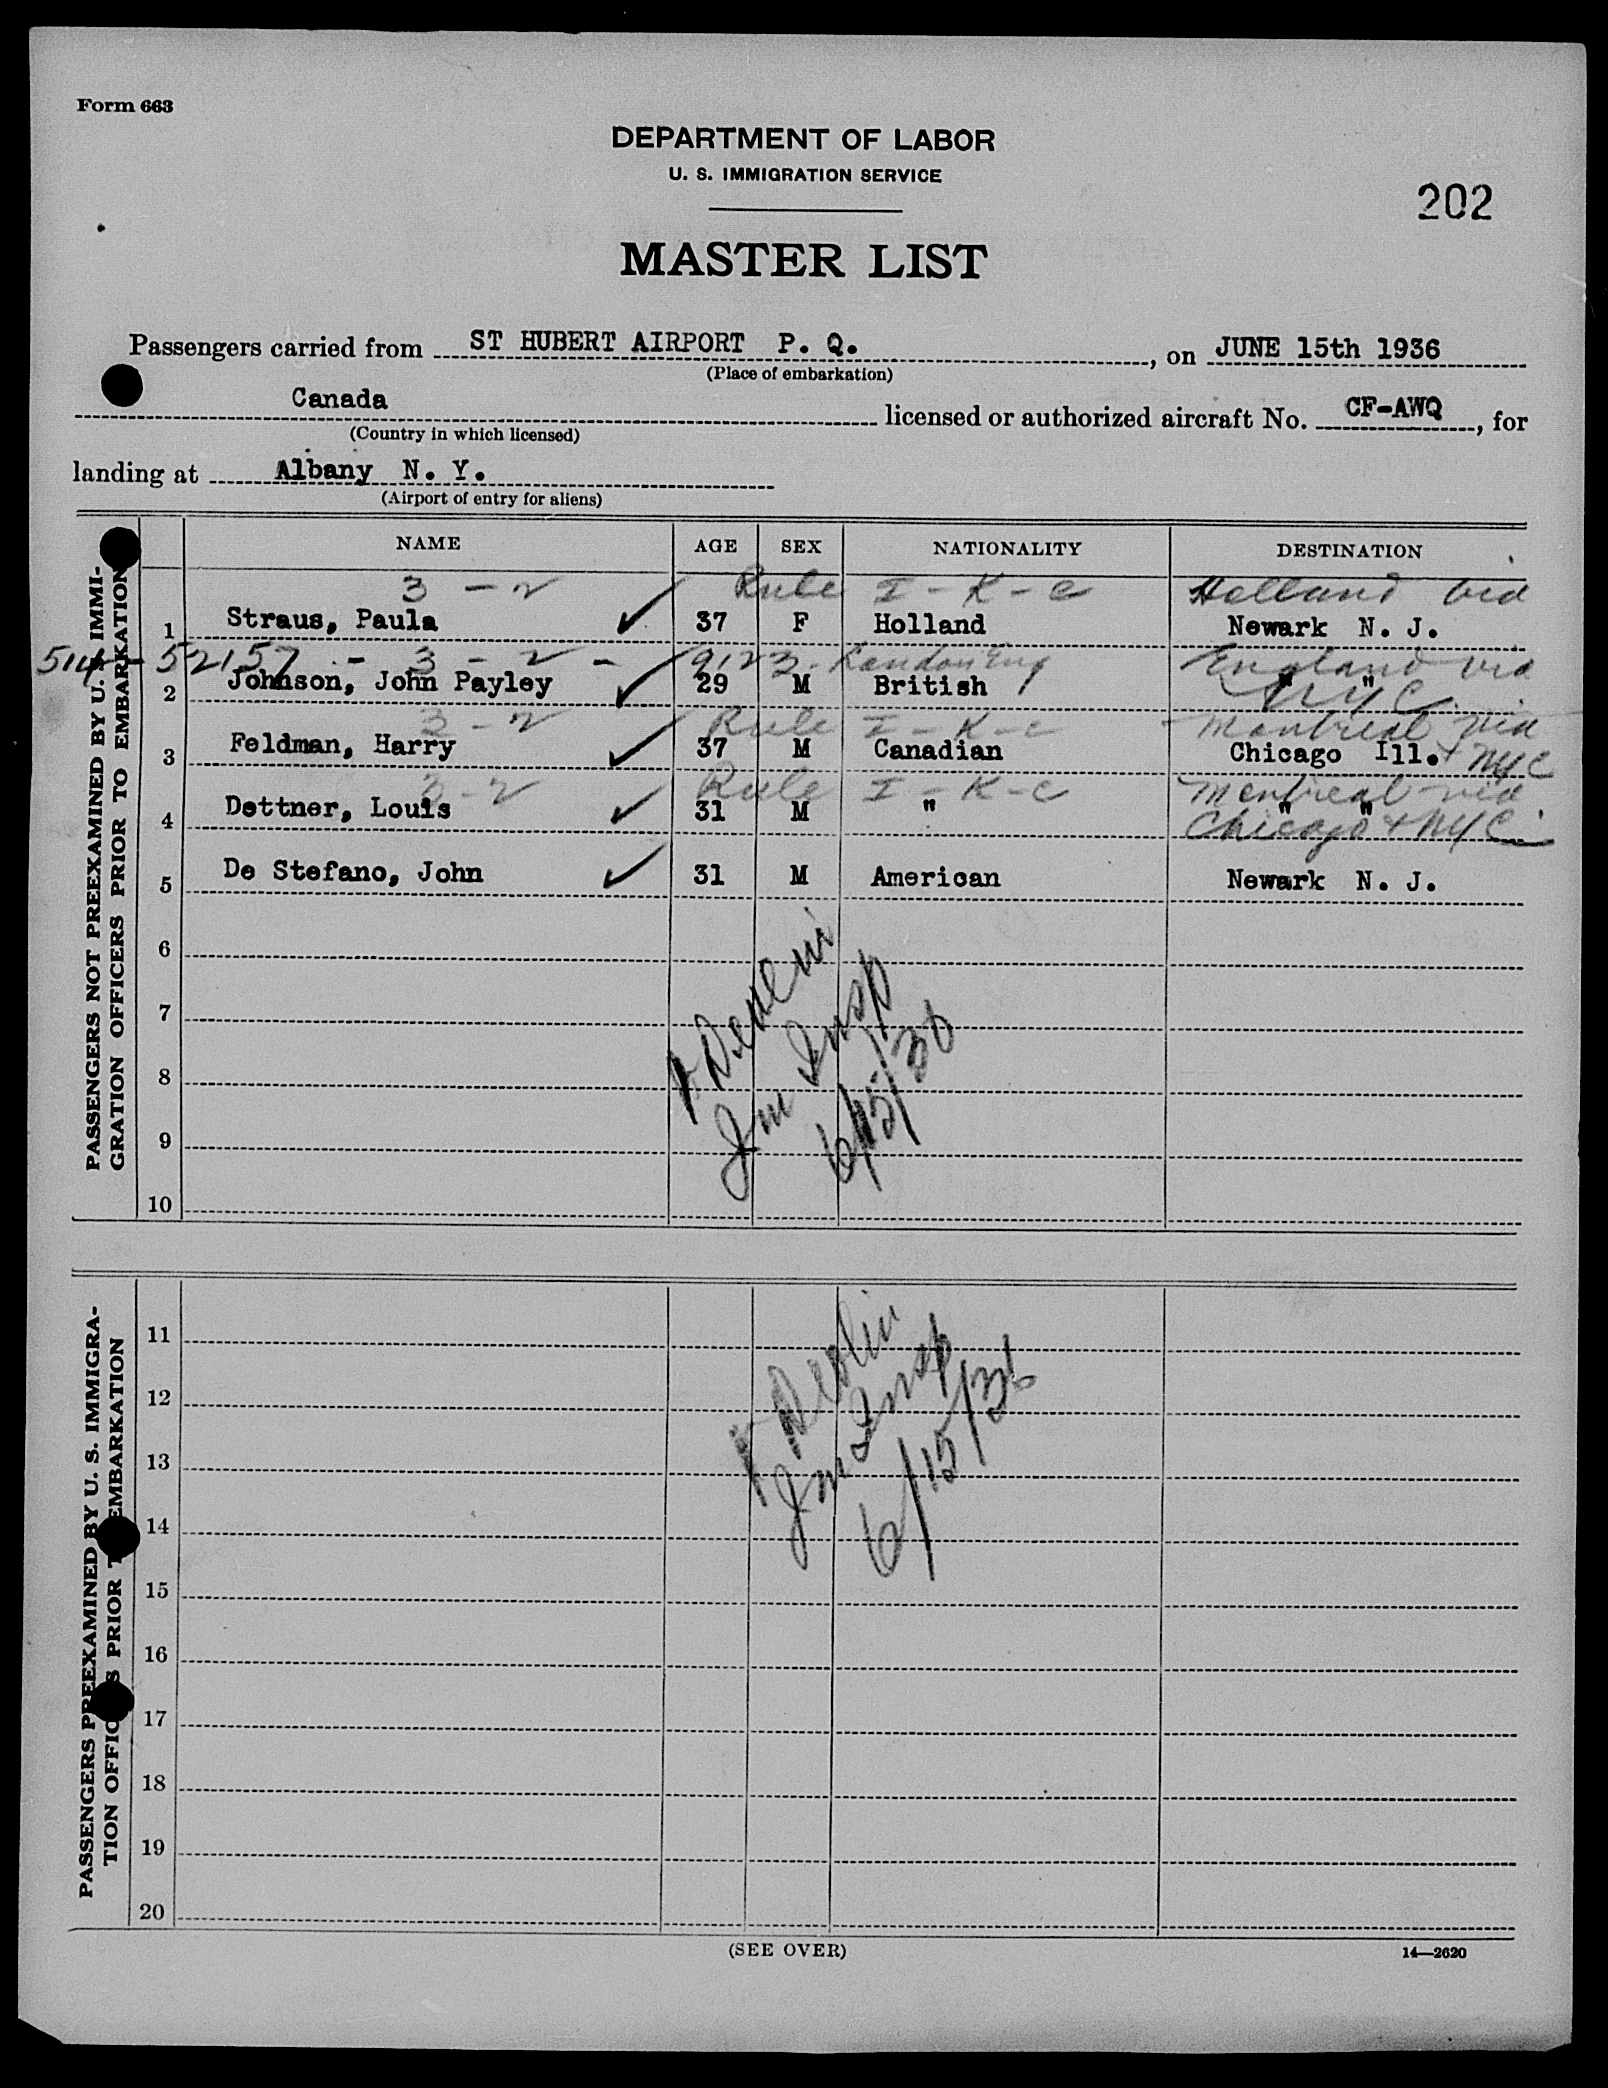 Form 663
DEPARTMENT OF LABOR
U. S. IMMIGRATION SERVICE
202
MASTER LIST
Passengers carried from ST HUBERT AIRPORT P. Q., on JUNE 15th 1936
(Place of embarkation)
Canada licensed or authorized aircraft No. CF-AWQ, for
(Country in which licensed)
landing at Albany N. Y.
(Airport of entry for aliens)
NAME AGE SEX NATIONALITY DESTINATION
PASSENGERS NOT PREEXAMINED BY U. S. IMMI-
GRATION OFFICERS PRIOR TO EMBARKATION
3 - 2 Rule I - K - c Holland via
1 Straus, Paula ✓ 37 F Holland Newark N. J.
514 - 52157 - 3 - 2 - 9123 - London Eng England via
2 Johnson, John Payley ✓ 29 M British " "
NYC
3 - 2 Rule I - K - c Montreal via
3 Feldman, Harry ✓ 37 M Canadian Chicago Ill. + NYC
3 - 2 Rule I - K - c Montreal via
4 Dettner, Louis ✓ 31 M " " "
Chicago + NYC
5 De Stefano, John ✓ 31 M American Newark N. J.
6
7
8
9
10
Devlin
Im Insp
6/15/36
PASSENGERS PREEXAMINED BY U. S. IMMIGRA-
TION OFFICERS PRIOR TO EMBARKATION
11
12
13
14
15
16
17
18
19
20
Devlin
Im Insp
6/15/36
(SEE OVER)
14—2620